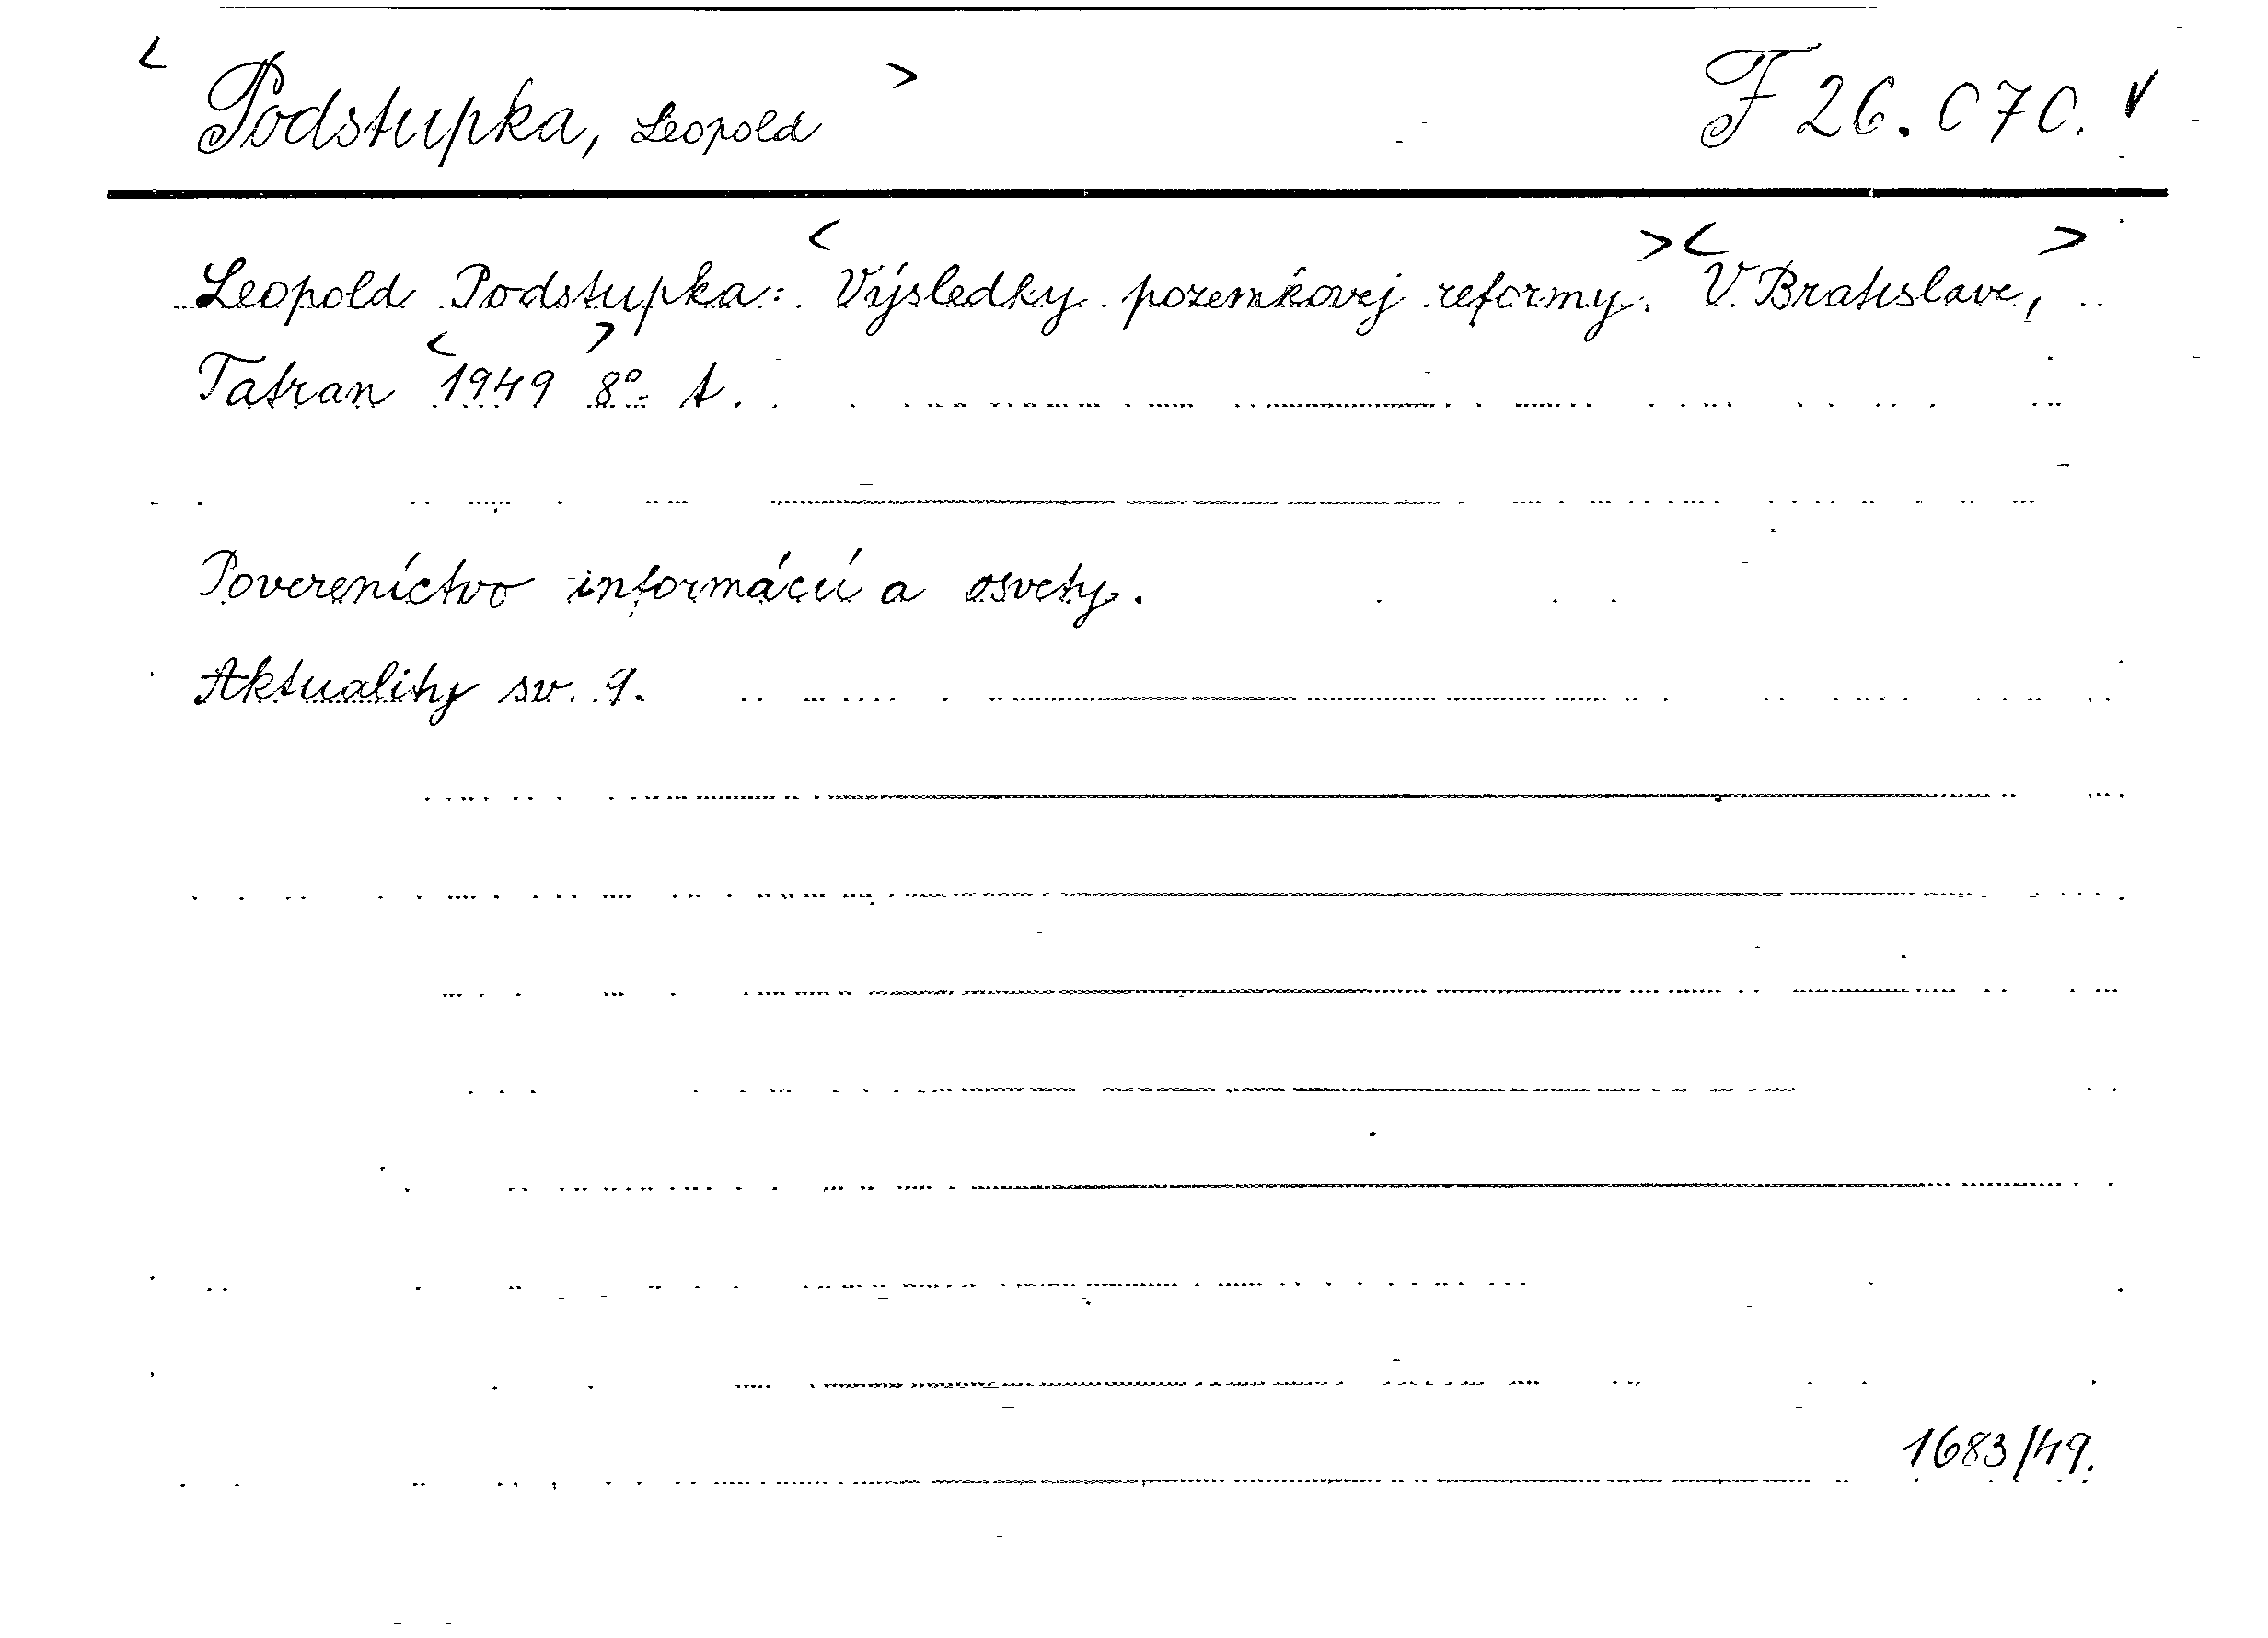 < Podstupka, Leopold > F 26.070. ✓
Leopold Podstupka: <Výsledky pozemkovej reformy.> <V Bratislave,>
Tatran <1949> 8°. t.
Povereníctvo informácií a osvety.
Aktuality sv. 9.
1683/49.